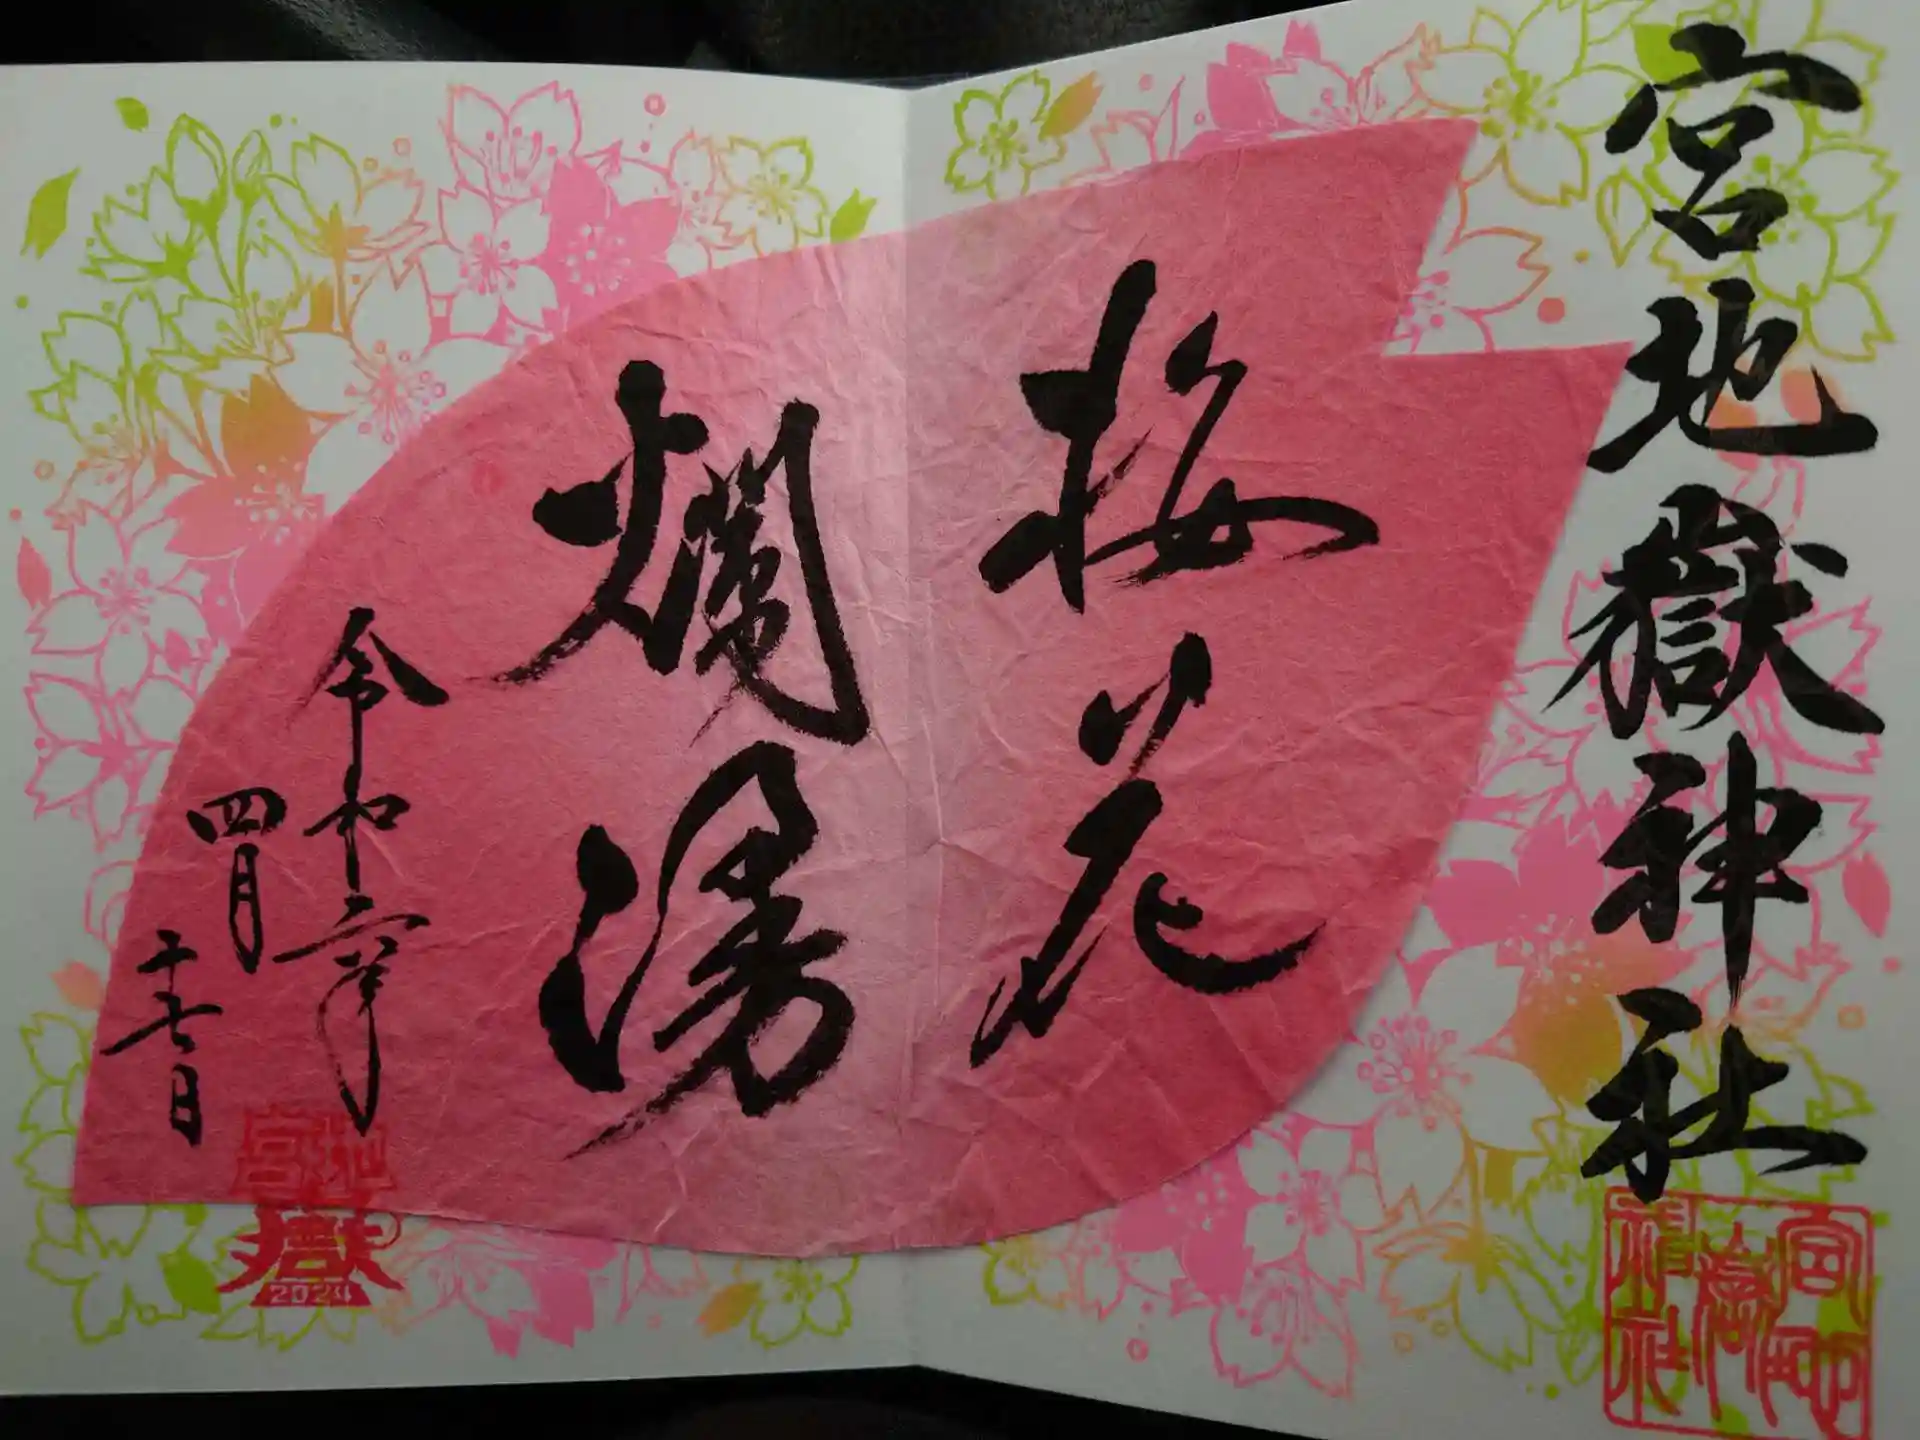 宮地嶽神社
宮地嶽神社
桜花
爛漫
令和六年
四月
十七日
宮地
嶽
2024